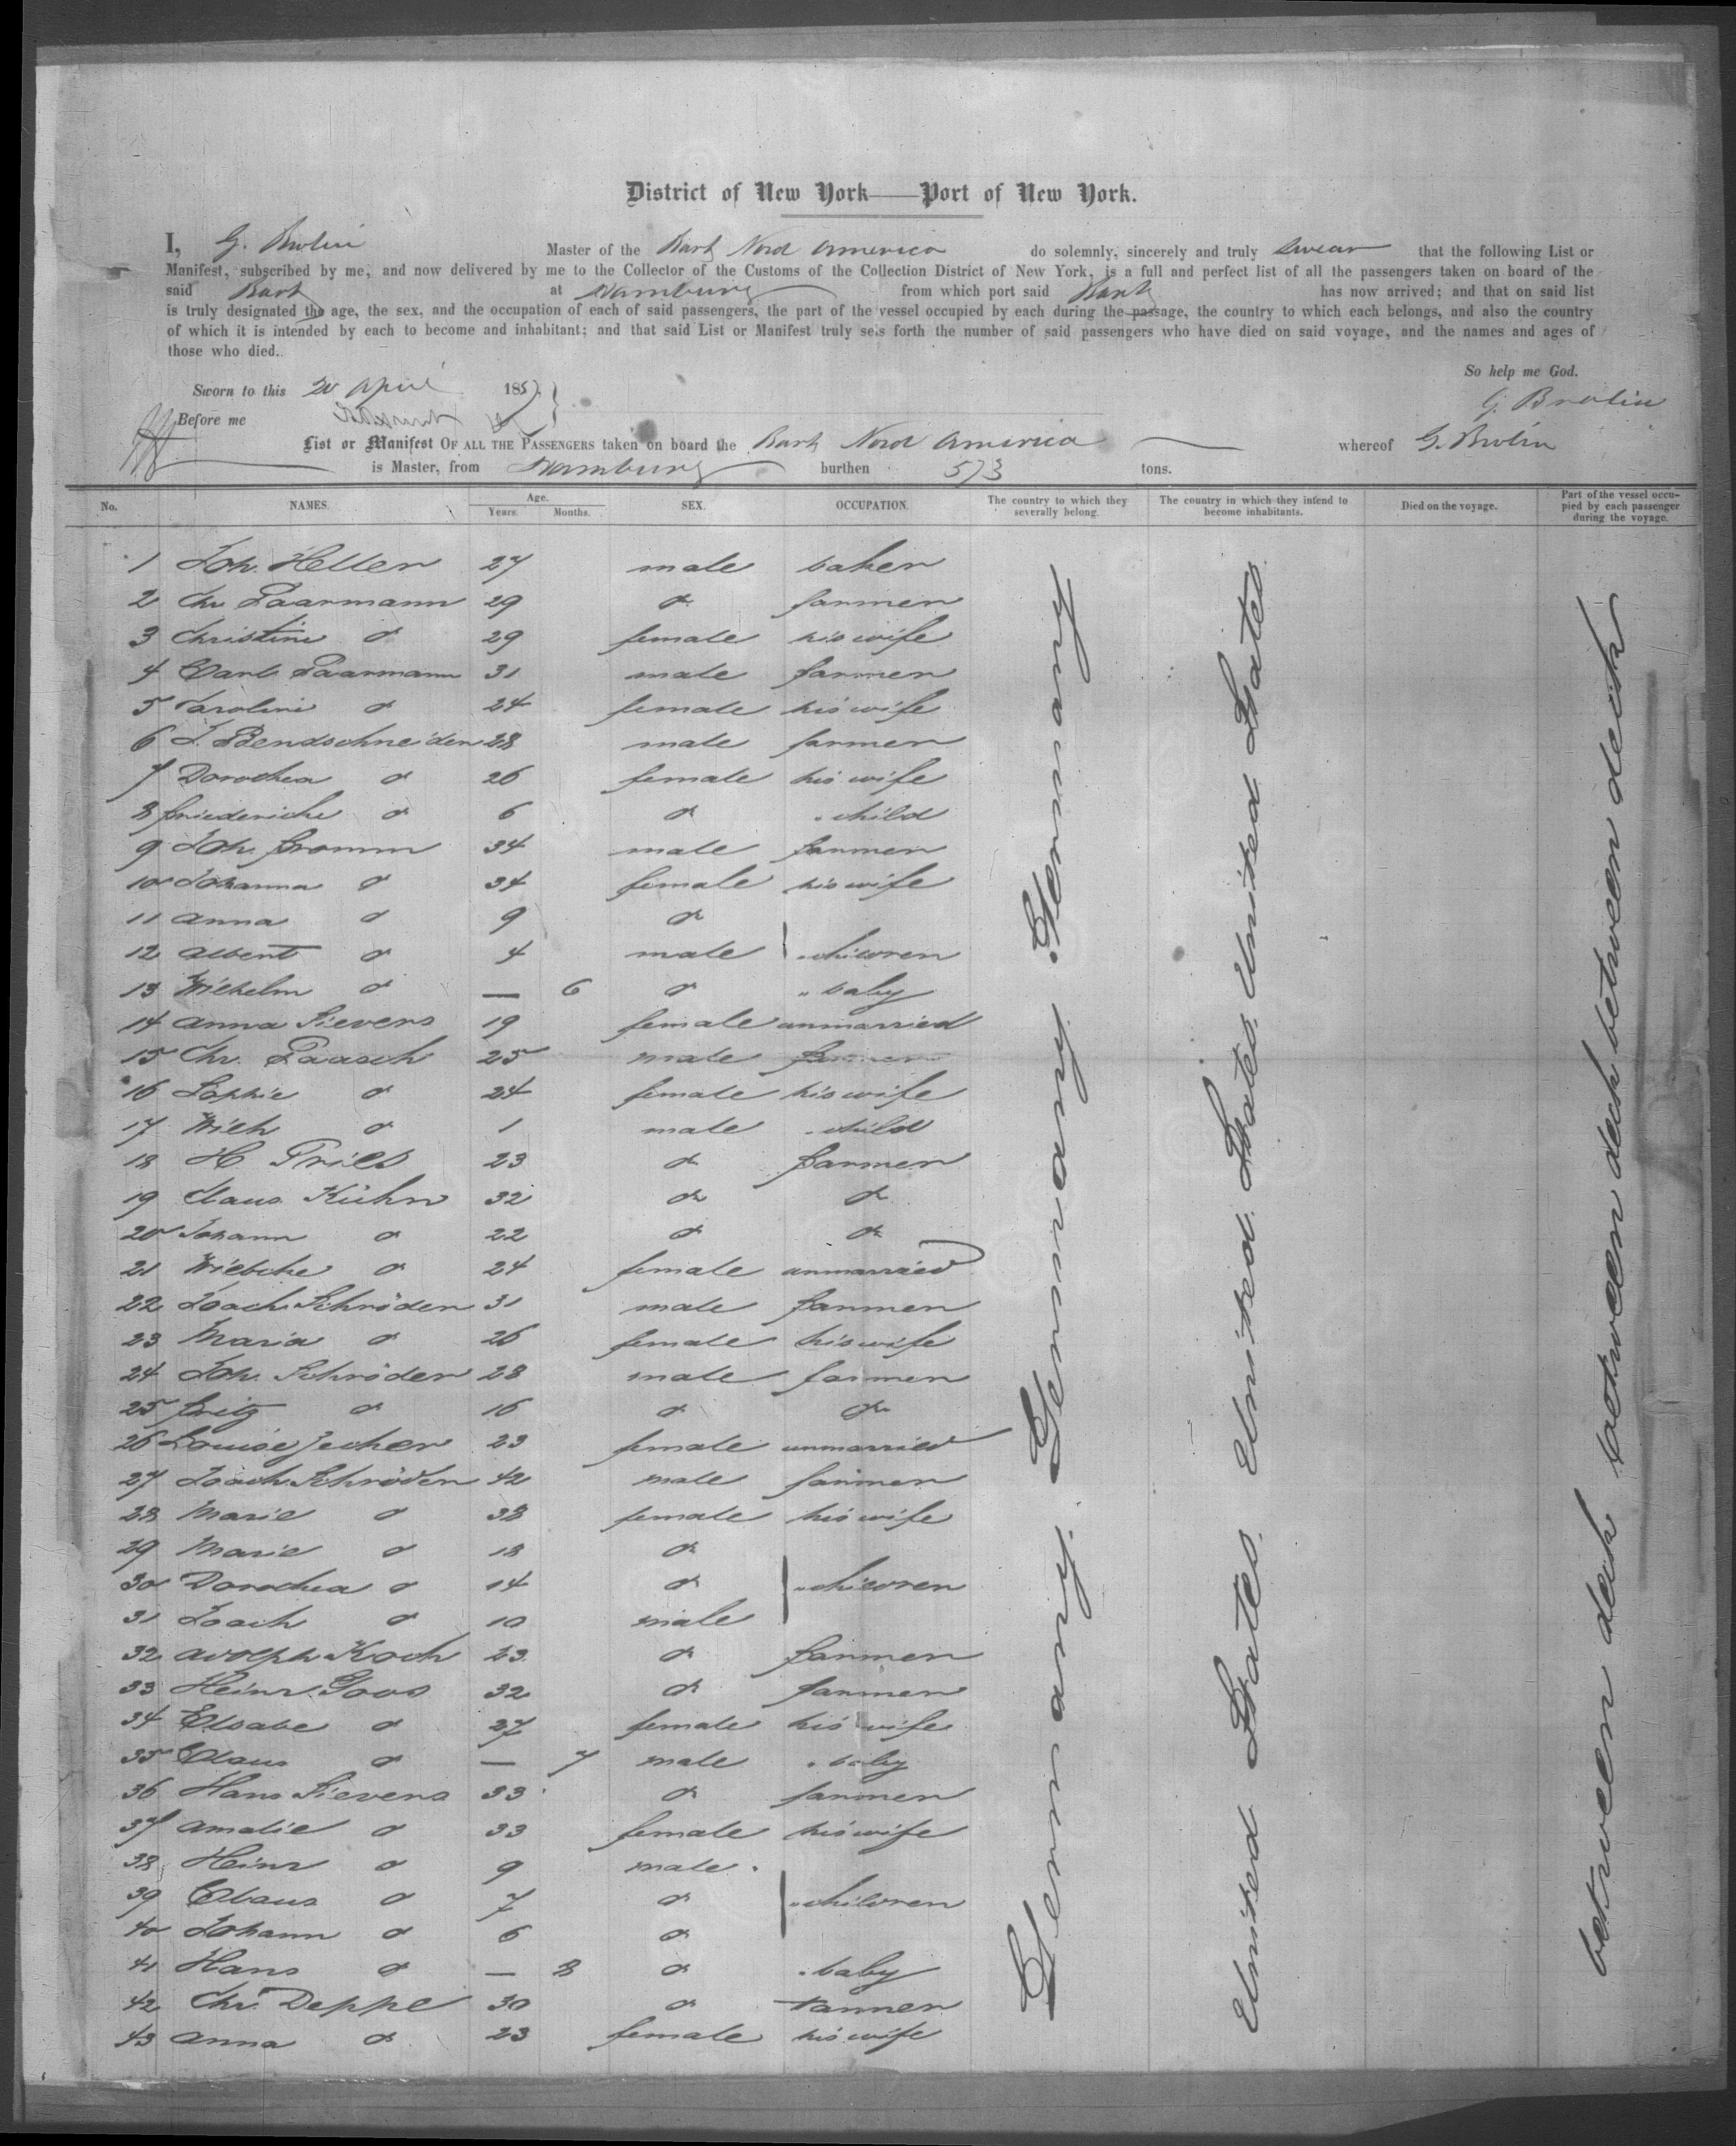 District of New York — Port of New York.
I, G. Brolin Master of the Bark Nord America do solemnly, sincerely and truly swear that the following List or
Manifest, subscribed by me, and now delivered by me to the Collector of the Customs of the Collection District of New York, is a full and perfect list of all the passengers taken on board of the
said Bark at Hamburg from which port said Bark has now arrived; and that on said list
is truly designated the age, the sex, and the occupation of each of said passengers, the part of the vessel occupied by each during the passage, the country to which each belongs, and also the country
of which it is intended by each to become and inhabitant; and that said List or Manifest truly sets forth the number of said passengers who have died on said voyage, and the names and ages of
those who died.
So help me God.
Sworn to this 20 April 1857 G. Brolin
Before me
List or Manifest OF ALL THE PASSENGERS taken on board the Bark Nord America whereof G. Brolin
is Master, from Hamburg burthen 573 tons.
No. NAMES. Age. Years. Months. SEX. OCCUPATION. The country to which they severally belong. The country in which they intend to become inhabitants. Died on the voyage. Part of the vessel occupied by each passenger during the voyage.
1 Joh. Heller 27 male baker
2 Chr. Paarmann 29 do farmer
3 Christine do 29 female his wife
4 Carl Paarmann 31 male farmer
5 Caroline do 24 female his wife
6 J. Bendschneider 28 male farmer
7 Dorothea do 26 female his wife
8 Friederiche do 6 do " child
9 Joh. Fromm 34 male farmer
10 Johanna do 34 female his wife
11 Anna do 9 do
12 Albert do 4 male " children
13 Wilhelm do — 6 do " baby
14 Anna Sievers 19 female unmarried
15 Chr. Paasch 25 male farmer
16 Sophie do 24 female his wife
17 Wilh do 1 male " child
18 H Pries 23 do farmer
19 Claus Kühn 32 do do
20 Johann do 22 do do
21 Wiebche do 24 female unmarried
22 Joach. Schröder 31 male farmer
23 Maria do 26 female his wife
24 Joh. Schröder 28 male farmer
25 Fritz do 16 do do
26 Louise Jecher 23 female unmarried
27 Joach. Schröder 42 male farmer
28 Marie do 38 female his wife
29 Marie do 18 do
30 Dorothea do 14 do " children
31 Joach do 10 male
32 Adolph Koch 23 do farmer
33 Heinr. Goos 32 do farmer
34 Elsabe do 27 female his wife
35 Claus do — 7 male " baby
36 Hans Sievers 33 do farmer
37 Amalie do 33 female his wife
38 Heinr do 9 male
39 Claus do 7 do " children
40 Johann do 6 do
41 Hans do — 8 do " baby
42 Chr. Deppe 30 do tanner
43 Anna do 23 female his wife
Germany. Germany. Germany
United States. United States. United States
between deck between deck between deck